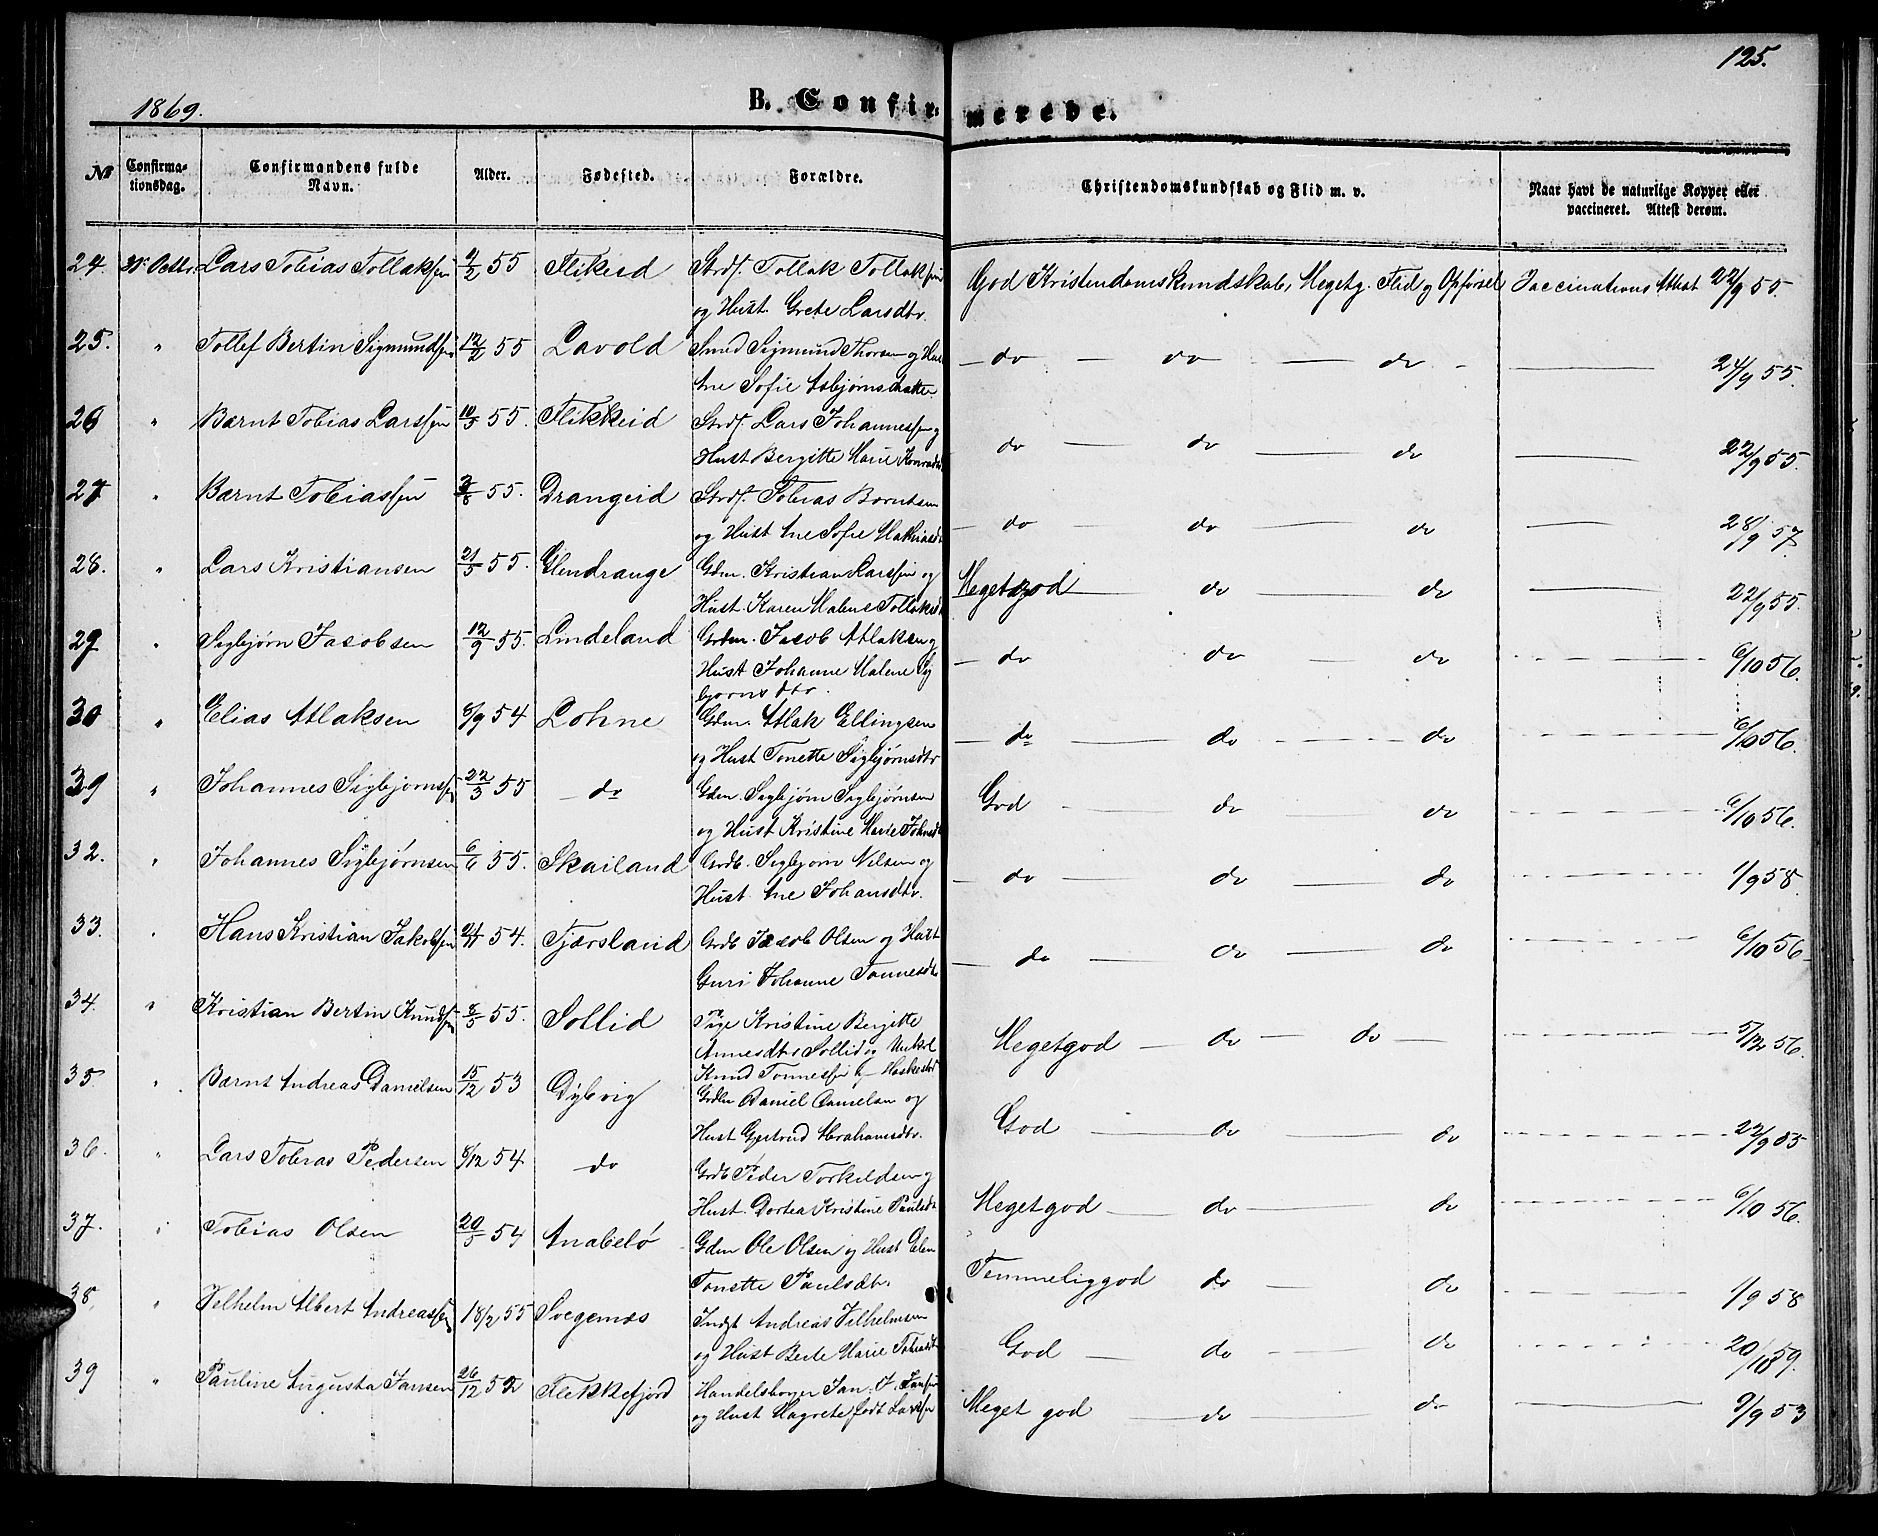 125.
1869.
B. Confirmerede.
№ Confirmationsdag. Confirmandens fulde Navn. Alder. Fødested. Forældre. Christendomskundskab og Flid m. v. Naar havt de naturlige Kopper eller vaccineret. Attest derom.
24 31 Octbr. Lars Tobias Tollaksen 9/2 55 Flikeid Strdf. Tollak Tollaksen God Kristendomskundskab, Megetg. Flid og Opførsel Vaccinations Attest 22/9 55.
og Hust. Grete Larsdtr.
25. " Tollef Bertin Sigmundsen 12/2 55 Lavold Smed Sigmund Thorsen og Hus do do do 24/9 55.
Ane Sofie Asbjørnsdatter
26 " Bærnt Tobias Larssen 10/5 55. Flikkeid Strdf. Lars Johannessen og do do do 22/9 55.
Hust Bergitte Marie
27 " Bærnt Tobiassen 55. Drangeid Strdf. Tobias Berntsen do do do 28/9 57.
og Hust Ane Sofie
28. " Lars Kristiansen 21/5 55. Glendrange Gdm. Kristian Larssen og Megetgod do do 22/9 55.
Hust. Karen Malene Tollaksdt
29 " Sigbjørn Jacobsen 12/9 55. Lindeland Grdm. Jacob Atlaksen og do do do 6/10 56.
Hust Johanne Malene Sig
bjørnsdtr.
30 " Elias Atlaksen 8/9 54 Lohne Gdm. Atlak Ellingsen do do do 6/10 56.
og Hust Tonette Sigbjørnsdtr
39 " Johannes Sigbjørnssen 22/3 55 do Gdm. Sigbjørn Sigbjørnsen God do do 6/10 56.
og Hust Kristine Marie Johnsdt
32. " Johannes Sigbjørnsen 6/6 55. Skailand Grdb. Sigbjørn Nilsen og do do do 1/9 58.
Hust. Ane Johansdtr.
33. " Hans Kristian Jakobsen 54. Fjærsland Grdb Jacob Olsen og Hust do do do 6/10 56
Guri Johanne Tønnesdtr
34. " Kristian Bertin Knudsen 8/5 55. Sollid Pige Kristine Bergitte Megetgod do do 5/12 56.
Annesdtr Sollid og Unkel
Knud Tønnessen
35 " Bærnt Andreas Danielsen 15/12 53 Dybvig Grdbr Daniel Danielsen og God do do 22/9 55
Hust Gjertrud Abrahamsdtr.
36. " Lars Tobias Pedersen 8/12 54 do Grdb Peder Torkildsen og Megetgod do do 6/10 56.
Hust. Dortea Kristine Paulsdt
37. " Tobias Olsen 20/5 54 Anabelø Gdm Ole Olsen og Hust Elen Temmeliggod do do 1/9 58
Tonette Paulsdtr
38. " Vilhelm Albert Andreassen 18/2 55 Svegenæs Indst Andreas Vilhelmsen God do do 20/10 59.
og Hust Berte Marie Tobiasdt
39 " Pauline Augusta Jansen 26/12 52 Flekkefjord Handelsborger Jan. J. Jansen Meget god do do 9/9 53
og Hust Magrete født Larssen